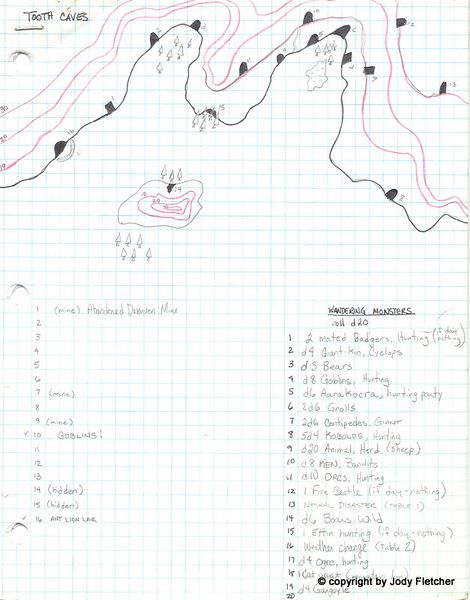 TOOTH CAVES
30
20
10
15
14
13
16
30
20
10
8
1 (mine) Abandoned Dwarven Mine
2
3
4
5
6
7 (mine)
8
9 (mine)
✓ 10 GOBLINS!
11
12
13
14 (hidden)
15 (hidden)
✓ 16 ANT LION LAIR
WANDERING MONSTERS
roll d20
1 2 mated Badgers, Hunting (if day nothing)
2 d4 Giant-Kin, Cyclops
3 d3 Bears
4 d8 Goblins, Hunting
5 d6 AaraKocra, hunting party
6 2d6 Gnolls
7 2d6 Centipedes, GIANT
8 5d4 KOBOLDS, Hunting
9 d20 Animal, Herd (sheep)
10 d8 MEN, Bandits
11 d10 ORCS, Hunting
12 1 Fire Beetle (if day-nothing)
13 NATURAL DISASTER (TABLE 1)
14 d6 Boars, Wild
15 1 Ettin hunting (if day-nothing)
16 Weather change (Table 2)
17 d4 Ogre, hunting
18 Cat
19 d4 Gargoyle
20
© copyright by Jody Fletcher